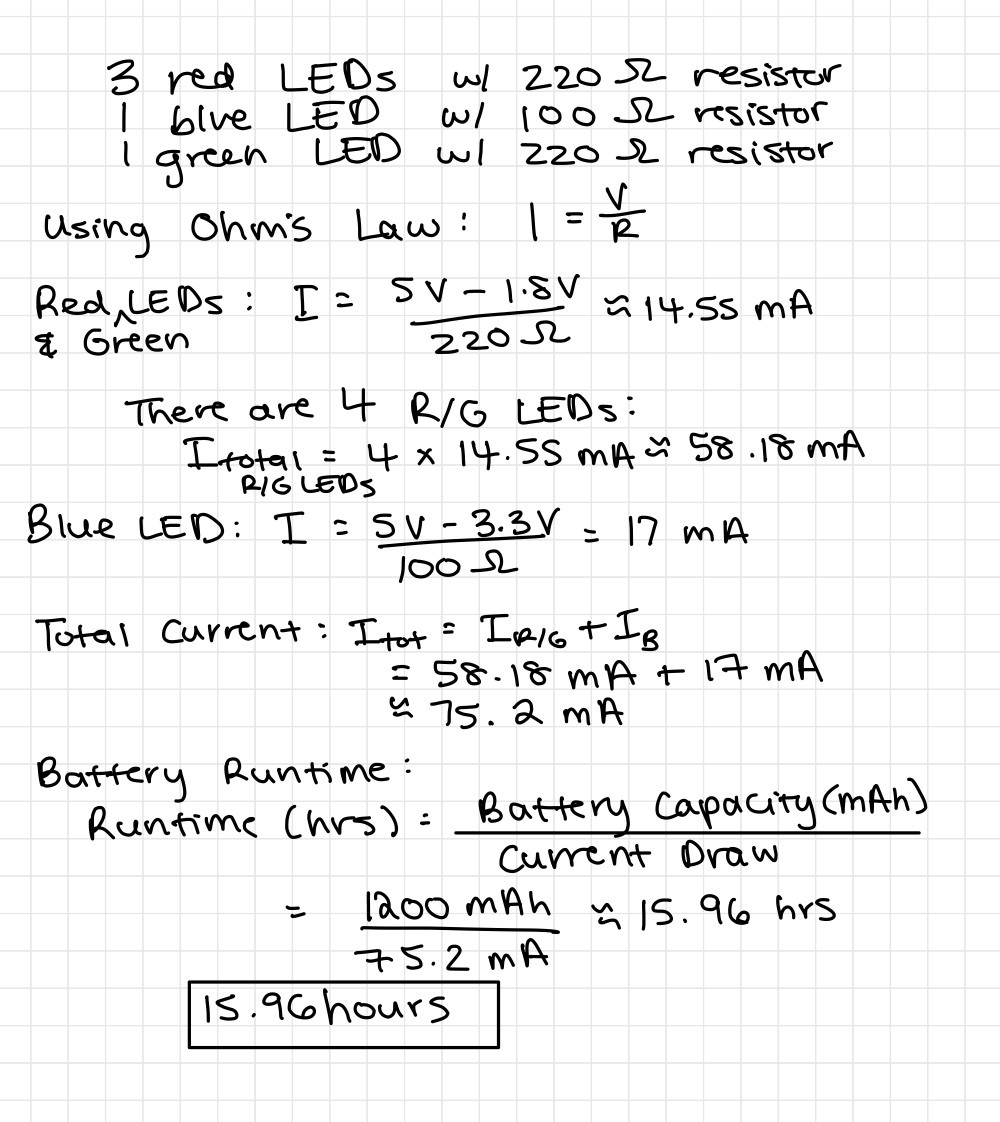 3 red LEDs w/ 220 Ω resistor
1 blue LED w/ 100 Ω resistor
1 green LED w/ 220 Ω resistor
Using Ohm's Law : I = V/R
Red & Green LEDs : I = (5V - 1.8V)/(220 Ω) ≈ 14.55 mA
There are 4 R/G LEDs:
I total R/G LEDs = 4 x 14.55 mA ≈ 58.18 mA
Blue LED: I = (5V - 3.3V)/(100 Ω) = 17 mA
Total Current : I tot = I R/G + I B
= 58.18 mA + 17 mA
≈ 75.2 mA
Battery Runtime :
Runtime (hrs) = Battery Capacity (mAh)/Current Draw
= 1200 mAh/75.2 mA ≈ 15.96 hrs
15.96 hours